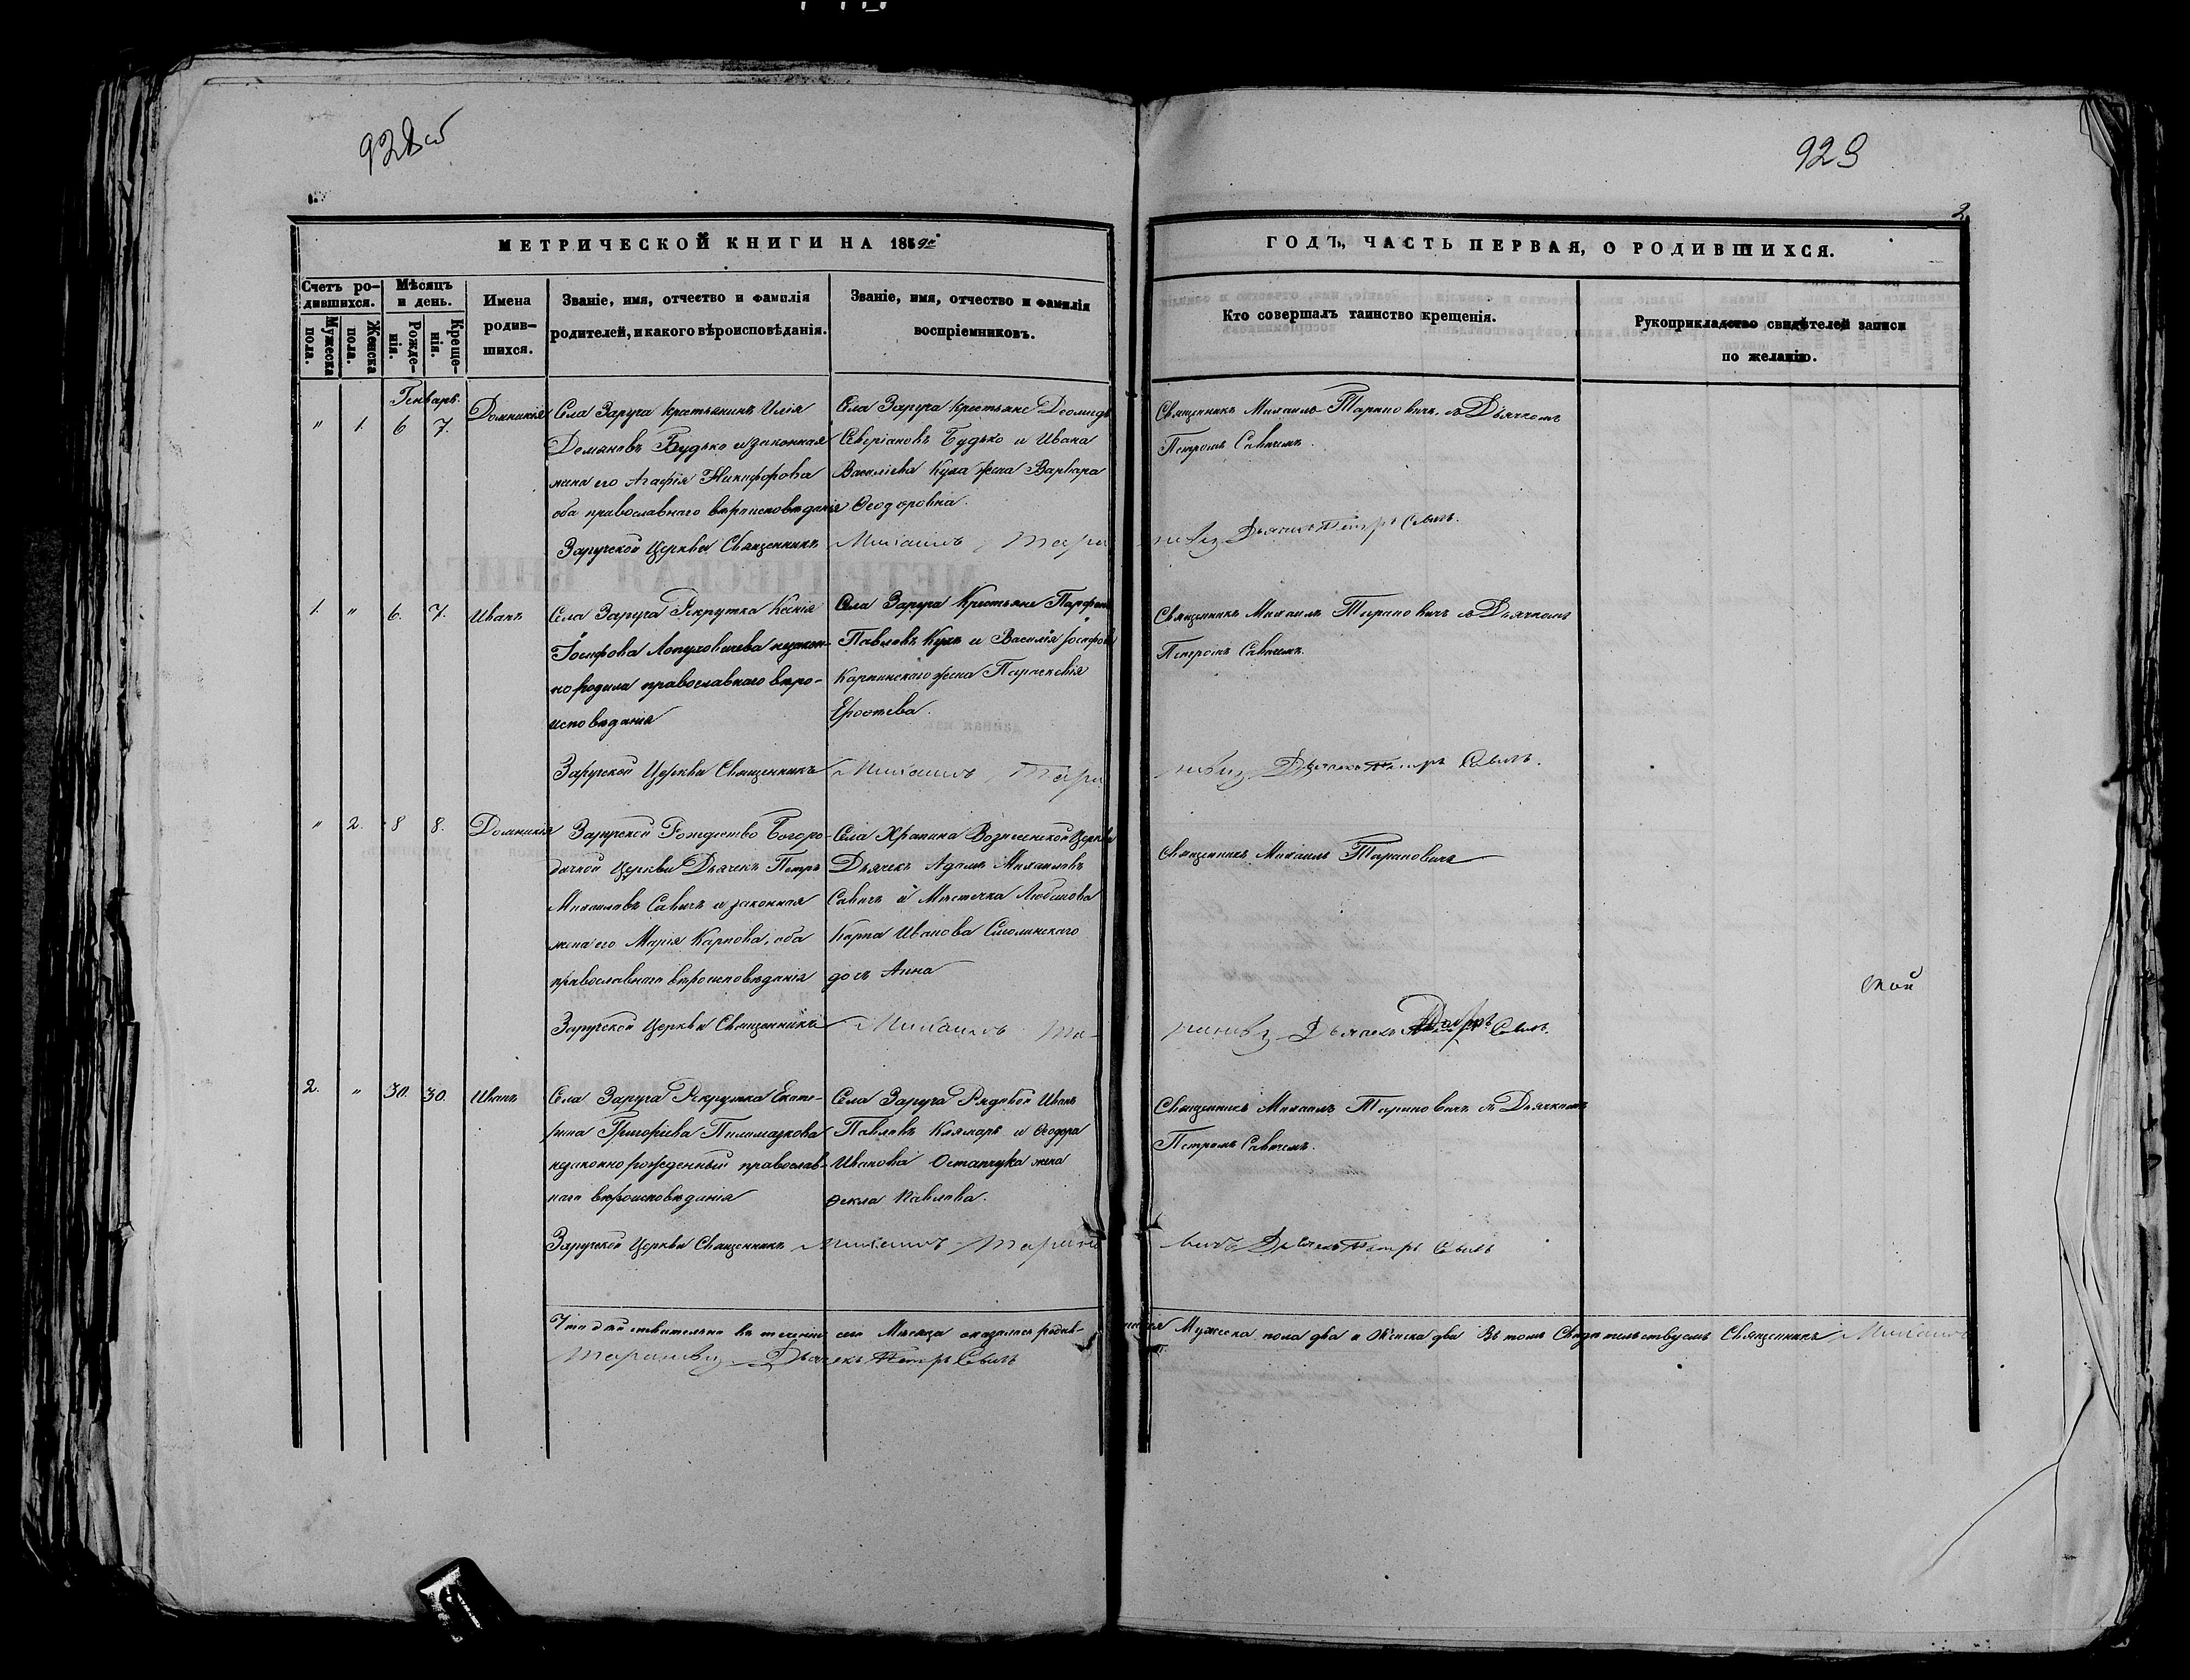 928об
929
2.
МЕТРИЧЕСКОЙ КНИГИ НА 1859й
ГОДЪ, ЧАСТЬ ПЕРВАЯ, О РОДИВШИХСЯ.
Счетъ ро-
дившихся.
Мужеска
пола.
Женска
пола.
Мѣсяцъ
и день.
Рожде-
нія.
Креще-
нія.
Имена
родив-
шихся.
Званіе, имя, отчество и фамилія
родителей, и какого вѣроисповѣданія.
Званіе, имя, отчество и фамилія
воспріемниковъ.
Кто совершалъ таинство крещенія.
Рукоприкладство свидѣтелей записи
по желанію.
Генварь.
" 1. 6 7.
Домникія
Села Заруча крестьянинъ Илія
Демяновъ Будько и законная
жена его Агафія Никифорова
оба православнаго вѣроисповѣданія
Села Заруча крестьяне Деомидъ
Северіановъ Будько и Ивана
Василіева Куха жена Варвара
Ѳеодоровна.
Священникъ Михаилъ Тарановичъ, съ Дьячкомъ
Петромъ Савичемъ.
Заручской Церкви Священникъ Михаилъ Тара
новичъ Дьячекъ Петръ Савичъ.
1. " 6. 7.
Иванъ
Села Заруча Рекрутка Ксенія
Іосифова Лопуховичева незакон-
но родила православнаго вѣро-
исповѣданія
Села Заруча Крестьяне Парфенъ
Павловъ Кухъ и Василія Іосифова
Карпинскаго жена Параскевія
Ерофѣева.
Священникъ Михаилъ Тарановичъ съ Дьячкомъ
Петромъ Савичемъ.
Заручской Церкви Священникъ Михаилъ Тара
новичъ Дьячекъ Петръ Савичъ.
" 2. 8 8.
Домникія
Заручской Рождество Богоро-
дичной Церкви Дьячекъ Петръ
Михаиловъ Савичъ и законная
жена его Марія Карпова, оба
православнаго вѣроисповѣданія
Села Храпина Вознесенской Церкви
Дьячекъ Адамъ Михаиловъ
Савичъ и Мѣстечка Любишова
Карпа Иванова Смолинскаго
дочь Анна
Священникъ Михаилъ Тарановичъ
Заручской Церкви Священникъ Михаилъ Та-
рановичъ Дьячекъ Петръ Савичъ.
2. " 30. 30.
Иванъ
Села Заруча Рекрутка Екате-
рина Григоріева Пилипчукова
незаконно рожденный православ-
наго вѣроисповѣданія
Села Заруча Рядовой Иванъ
Павловъ Клямаръ и Ѳеодора
Иванова Остапчука жена
Ѳекла Павлова.
Священникъ Михаилъ Тарановичъ съ Дьячкомъ
Петромъ Савичемъ.
Заручской Церкви Священникъ Михаилъ Тарано
вичъ Дьячекъ Петръ Савичъ
Что дѣйствительно въ теченіи сего Мѣсяца оказалось родив-
шихся Мужеска пола два и Женска два въ томъ Свидѣтельствуемъ Священникъ Михаилъ
Тарановичъ Дьячекъ Петръ Савичъ